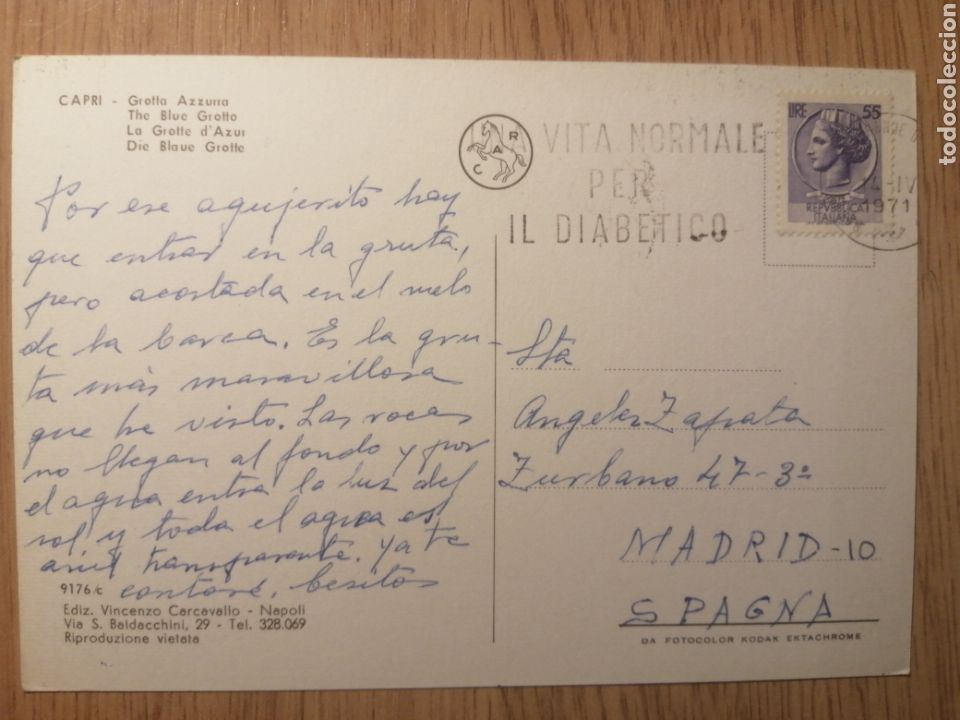 CAPRI - Grotta Azzurra
The Blue Grotto
La Grotte d'Azur
Die Blaue Grotte
Por ese agujerito hay
que entrar en la gruta,
pero acostada en el suelo
de la barca. Es la gru-
ta más maravillosa
que he visto. Las rocas
no llegan al fondo y por
el agua entra la luz del
sol, y toda el agua es
azul transparente. Ya te
contaré, besitos
9176/c
Ediz. Vincenzo Carcavallo - Napoli
Via S. Baldacchini, 29 - Tel. 328.069
Riproduzione vietata
CAR
UNA VITA NORMALE
PER
IL DIABETICO
LIRE 55
REPVBBLICA
ITALIANA
14-IV
1971
Sta
Angeles Zapata
Zurbano 47-3º
MADRID-10
SPAGNA
DA FOTOCOLOR KODAK EKTACHROME
todocoleccion